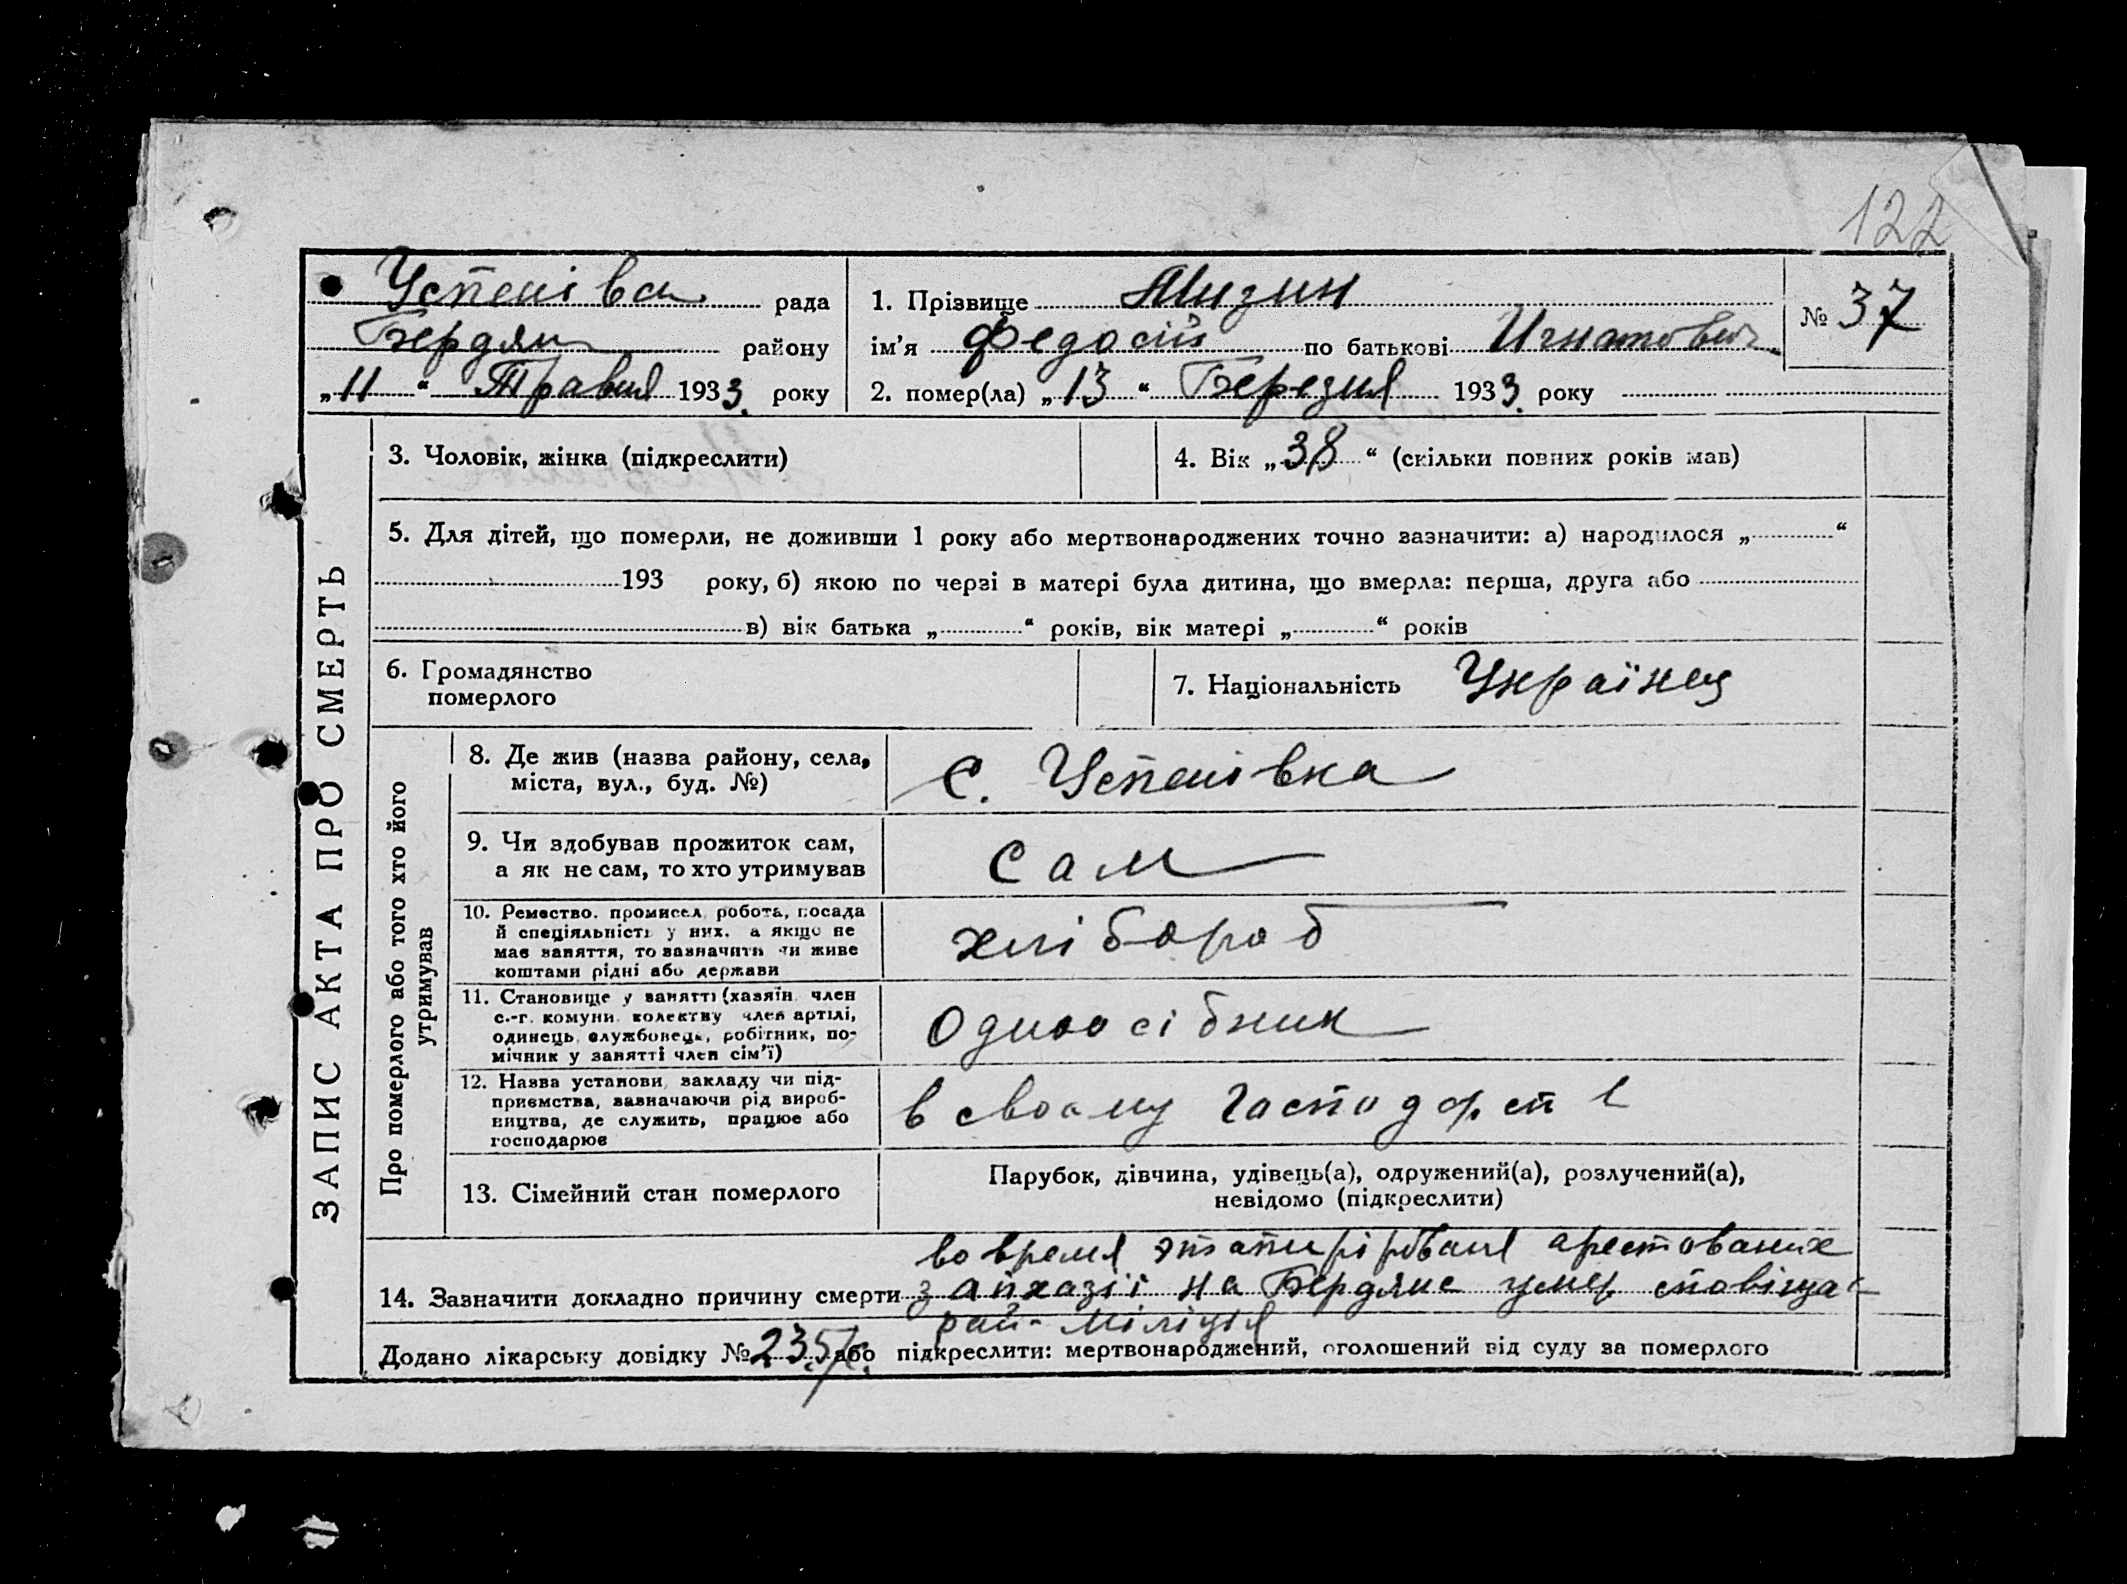 122
Успенівськ рада
Бердян району
„11“ Травня 1933 року
1. Прізвище Мизин
ім’я Федосій по батькові Игнатович
2. помер(ла) „13“ Березня 1933 року
№ 37
ЗАПИС АКТА ПРО СМЕРТЬ
3. Чоловік, жінка (підкреслити)
4. Вік „38“ (скільки повних років мав)
5. Для дітей, що померли, не доживши 1 року або мертвонароджених точно зазначити: а) народилося „ “
193 року, б) якою по черзі в матері була дитина, що вмерла: перша, друга або
в) вік батька „ “ років, вік матері „ “ років
6. Громадянство
померлого
7. Національність Українец
Про померлого або того хто його
утримував
8. Де жив (назва району, села,
міста, вул., буд. №)
с. Успенівка
9. Чи здобував прожиток сам,
а як не сам, то хто утримував
сам
10. Ремество, промисел, робота, посада
й спеціяльність у них, а якщо не
має заняття, то зазначити чи живе
коштами рідні або держави
хлібороб
11. Становище у занятті (хазяїн, член
с.-г. комуни, колективу, член артілі,
одинець, службовець, робітник, по-
мічник у занятті член сім’ї)
Одноосібник
12. Назва установи, закладу чи під-
приємства, зазначаючи рід вироб-
ництва, де служить, працює або
господарює
в своему
13. Сімейний стан померлого
Парубок, дівчина, удівець(а), одружений(а), розлучений(а),
невідомо (підкреслити)
во время арестованих
14. Зазначити докладно причину смерти з Апхазіі на Бердянс умер сповіща
рай-міліція
Додано лікарську довідку № 235/с. або підкреслити: мертвонароджений, оголошений від суду за померлого